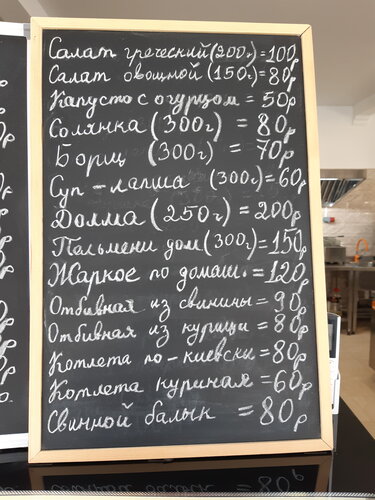 Салат греческий (200г) = 100р
Салат овощной (150г) = 80р
Капусто с огурцом = 50р
Солянка (300г) = 80р
Борщ (300г) = 70р
Суп-лапша (300г) = 60р
Долма (250г) = 200р
Пельмени дом (300г) = 150р
Жаркое по домаш. = 120р
Отбивная из свинины = 90р
Отбивная из курицы = 80р
Котлета по-киевски = 80р
Котлета куриная = 60р
Свинной балык = 80р